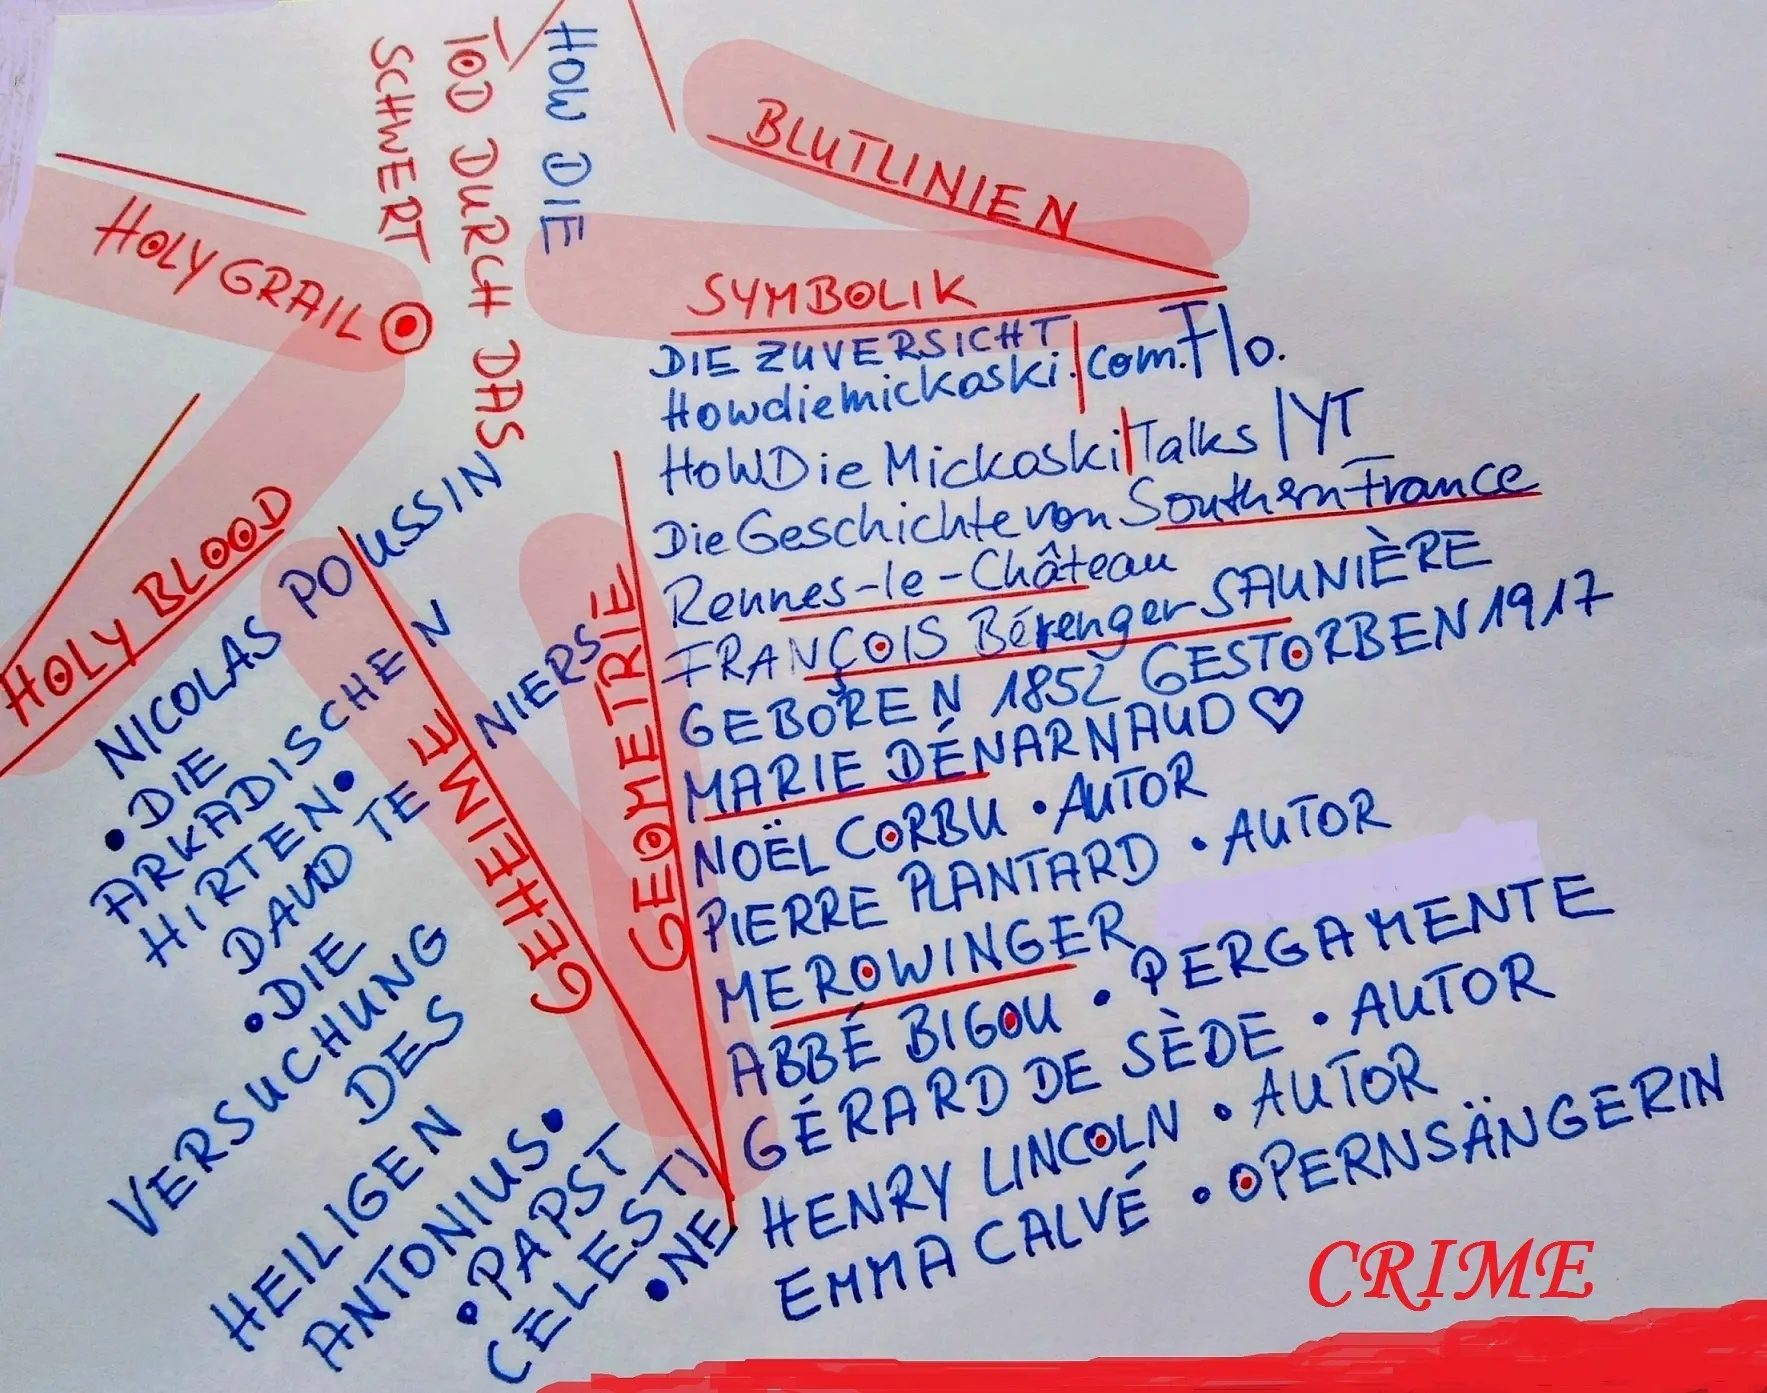 HOW DIE
TOD DURCH DAS
SCHWERT
BLUTLINIEN
HOLY GRAIL
SYMBOLIK
DIE ZUVERSICHT
Howdiemickoski.|com.Flo.
HoWDie Mickoski|Talks|YT
Die Geschichte von Southern France
Rennes-le-Château
FRANÇOIS Bérenger SAUNIÈRE
GEBOREN 1852 GESTORBEN 1917
MARIE DÉNARNAUD ♡
NOËL CORBU • AUTOR
PIERRE PLANTARD • AUTOR
MEROWINGER
ABBÉ BIGOU • PERGAMENTE
GÉRARD DE SÈDE • AUTOR
HENRY LINCOLN • AUTOR
EMMA CALVÉ • OPERNSÄNGERIN
HOLY BLOOD
GEHEIME
GEOMETRIE
NICOLAS POUSSIN
• DIE
ARKADISCHEN
HIRTEN •
DAVID TENIERS
• DIE
VERSUCHUNG
DES
HEILIGEN
ANTONIUS •
• PAPST
CÉLESTI
• NE
CRIME